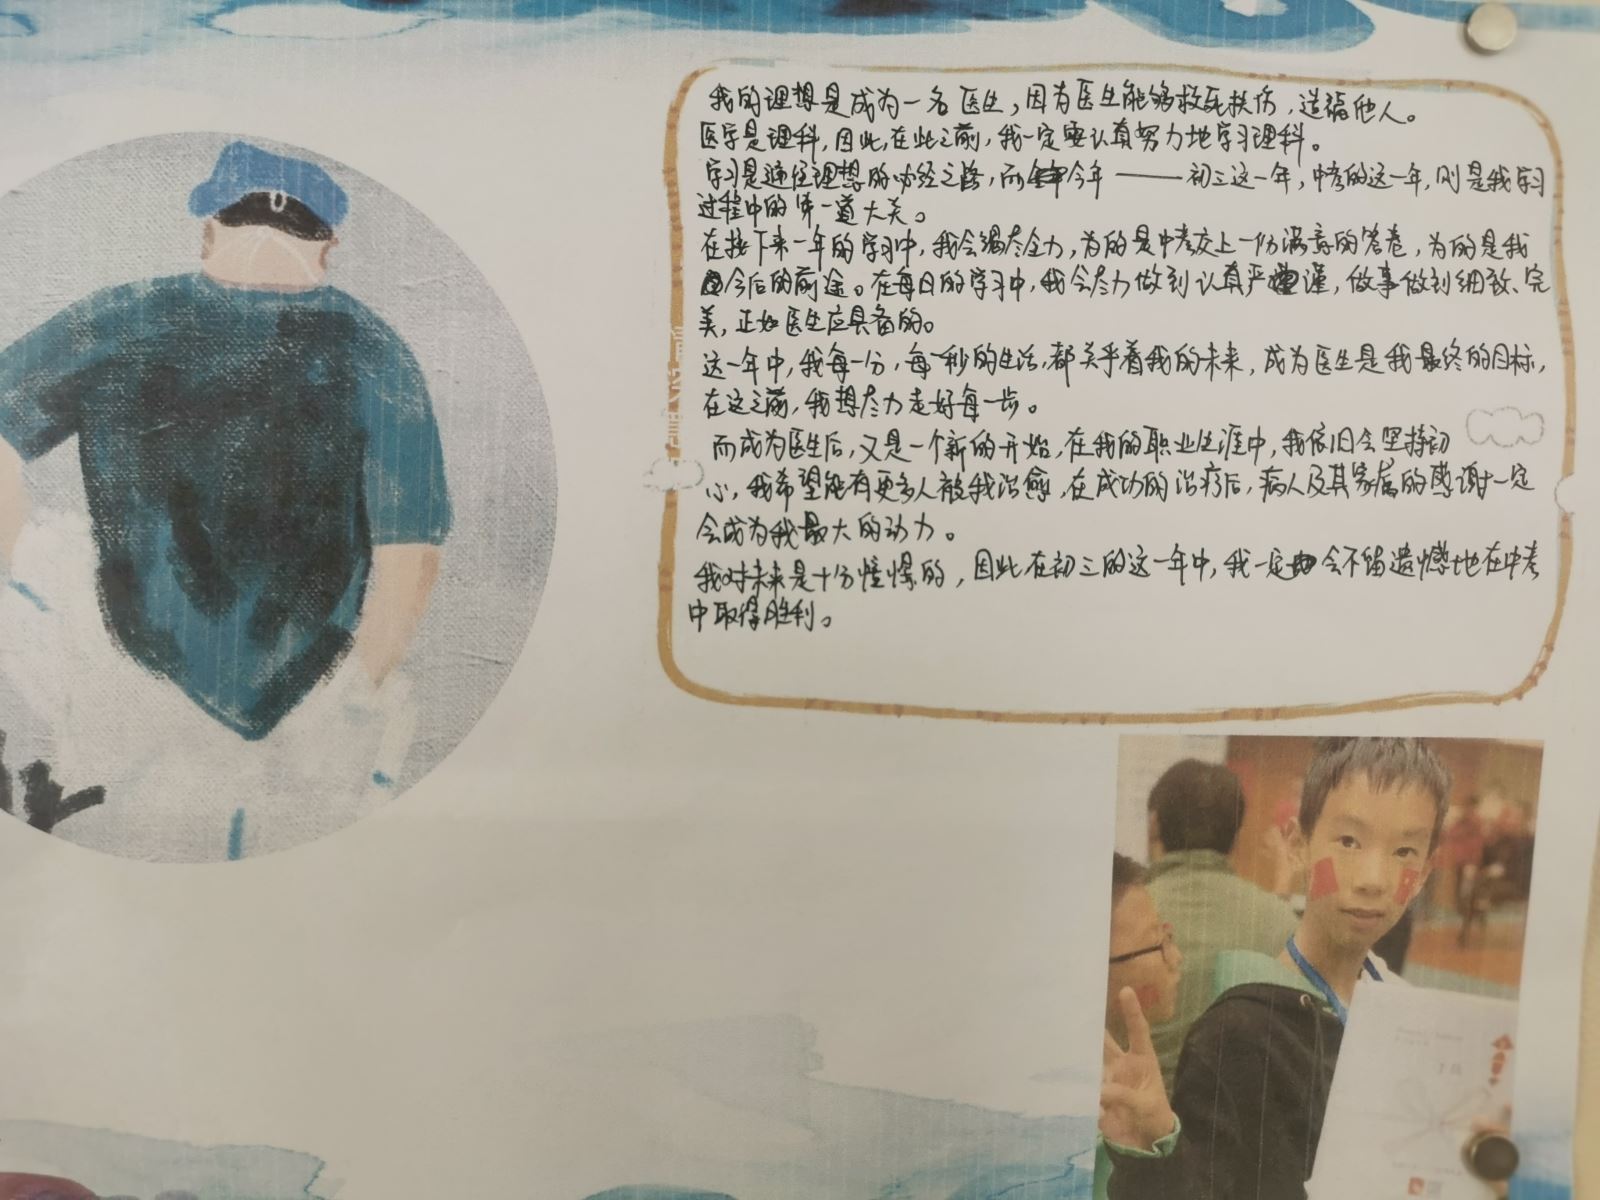 我的理想是成为一名医生，因为医生能够救死扶伤，造福他人。
医学是理科，因此，在此之前，我一定要认真努力地学习理科。
学习是通往理想的必经之路，而今年——初三这一年，中考的这一年，则是我学习
过程中的第一道大关。
在接下来一年的学习中，我会竭尽全力，为的是中考交上一份满意的答卷，为的是我
今后的前途。在每日的学习中，我会尽力做到认真严谨，做事做到细致、完
美，正如医生应具备的。
这一年中，我每一分，每一秒的生活，都关乎着我的未来，成为医生是我最终的目标，
在这之前，我想尽力走好每一步。
而成为医生后，又是一个新的开始，在我的职业生涯中，我依旧会坚持初
心，我希望能有更多人被我治愈，在成功的治疗后，病人及其家属的感谢一定
会成为我最大的动力。
我对未来是十分憧憬的，因此在初三的这一年中，我一定会不留遗憾地在中考
中取得胜利。